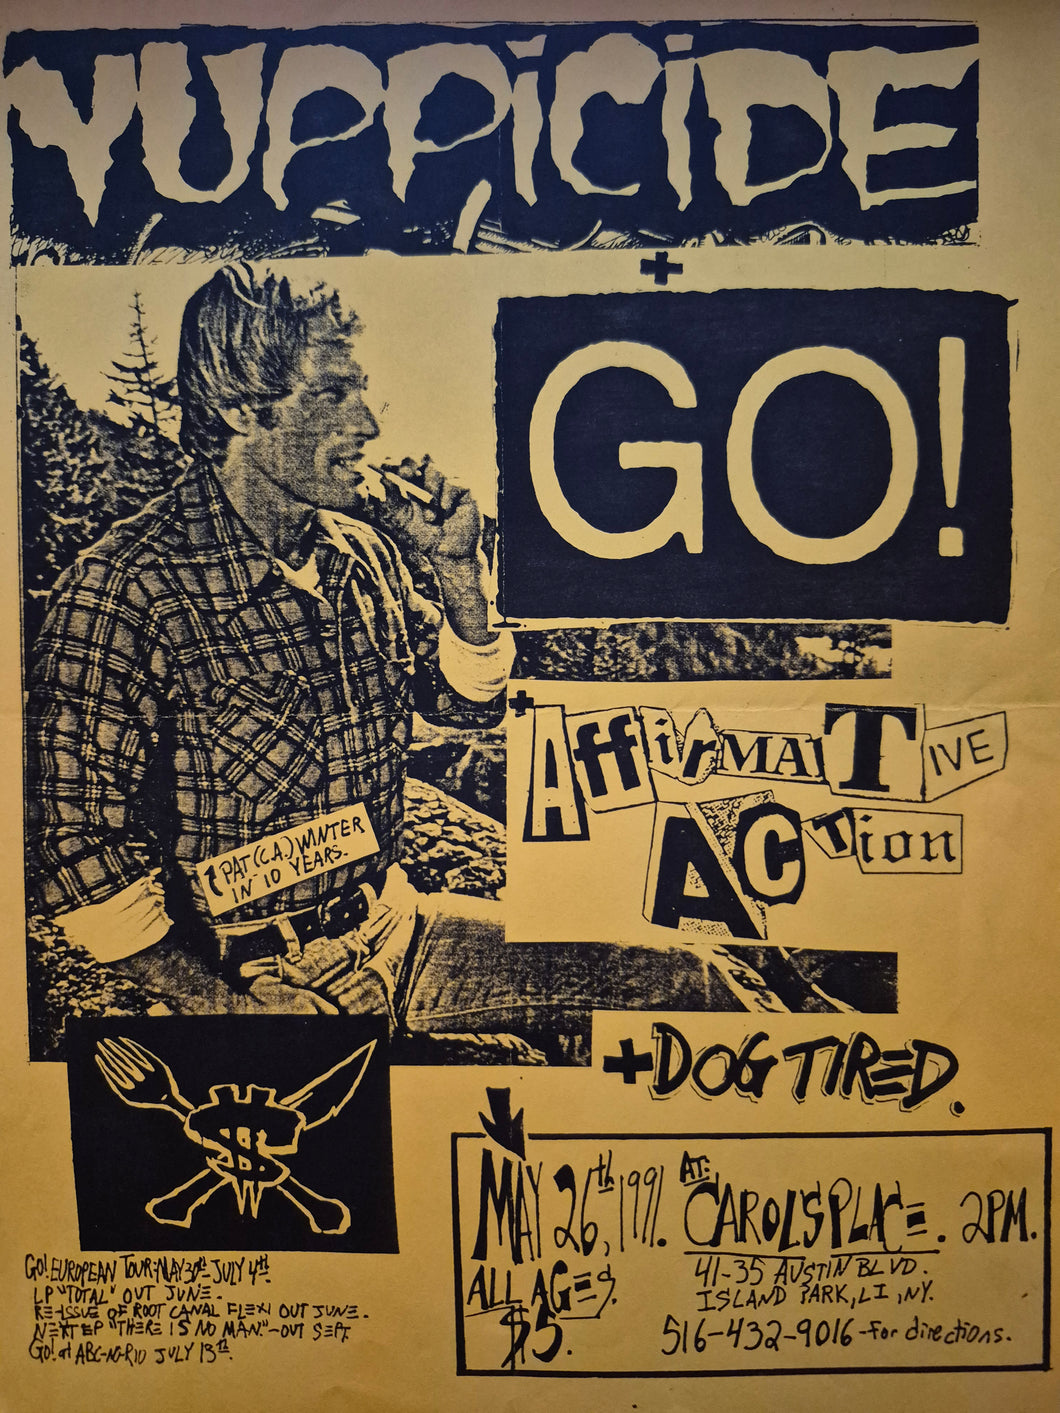 YUPPiCiDE
+
GO!
+
AffirMATIVE
ACTion
PAT (C.A.) WINTER
IN 10 YEARS.
+DOG TIRED.
$
MAY 26th, 1991. AT: CAROL'S PLACE. 2PM.
ALL AGES.
$5.
41-35 AUSTIN BLVD.
ISLAND PARK, LI, NY.
516-432-9016-for directions.
GO! EUROPEAN TOUR-MAY 30th-JULY 4th.
LP "TOTAL" OUT JUNE.
RE-ISSUE OF ROOT CANAL FLEXI OUT JUNE.
NEXT EP "THERE IS NO MAN."-OUT SEPT.
GO! at ABC-NO-RIO JULY 13th.